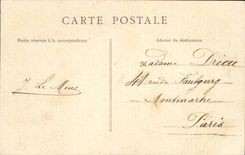 CARTE POSTALE
Partie réservée à la correspondance
Adresse du destinataire
Madame Drieu
44 rue du Faubourg
Montmartre
Paris
J. Le Mene